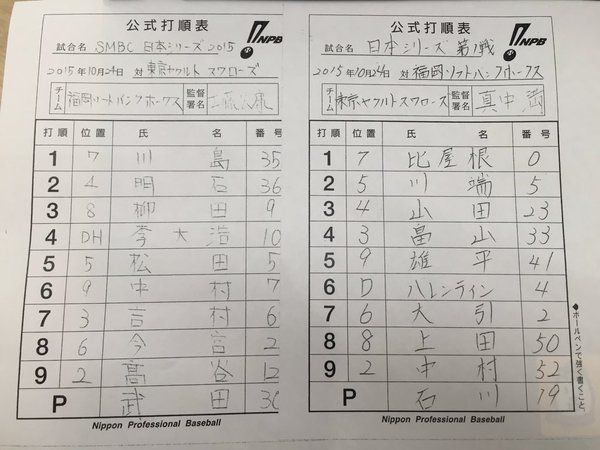 公式打順表
NPB
試合名 SMBC 日本シリーズ2015
2015年10月24日 対 東京ヤクルトスワローズ
チーム 福岡ソフトバンクホークス 監督署名 工藤公康
打順 位置 氏 名 番号
1 7 川島 35
2 4 明石 36
3 8 柳田 9
4 DH 李大浩 10
5 5 松田 5
6 9 中村 7
7 3 吉村 6
8 6 今宮 2
9 2 高谷 12
P 武田 30
Nippon Professional Baseball
公式打順表
NPB
試合名 日本シリーズ 第1戦
2015年10月24日 対 福岡ソフトバンクホークス
チーム 東京ヤクルトスワローズ 監督署名 真中満
打順 位置 氏 名 番号
1 7 比屋根 0
2 5 川端 5
3 4 山田 23
4 3 畠山 33
5 9 雄平 41
6 D バレンティン 4
7 6 大引 2
8 8 上田 50
9 2 中村 52
P 石川 19
Nippon Professional Baseball
●ボールペンで強く書くこと